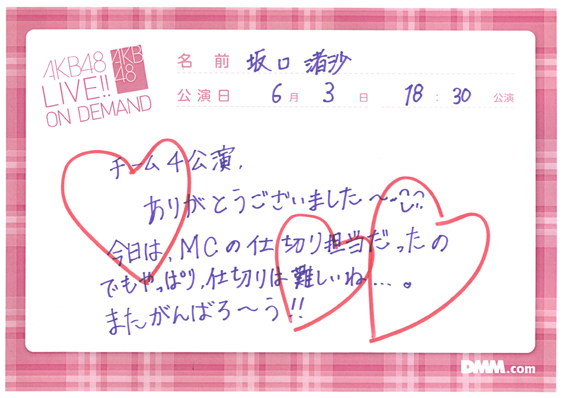 AKB48
LIVE!!
ON DEMAND
AKB
48
名前 坂口 渚沙
公演日 6月 3日 18:30 公演
チーム4公演、
ありがとうございました〜
今日は、MCの仕切り担当だったの
でもやっぱり、仕切りは難しいね...。
またがんばろ〜う!!
DMM.com